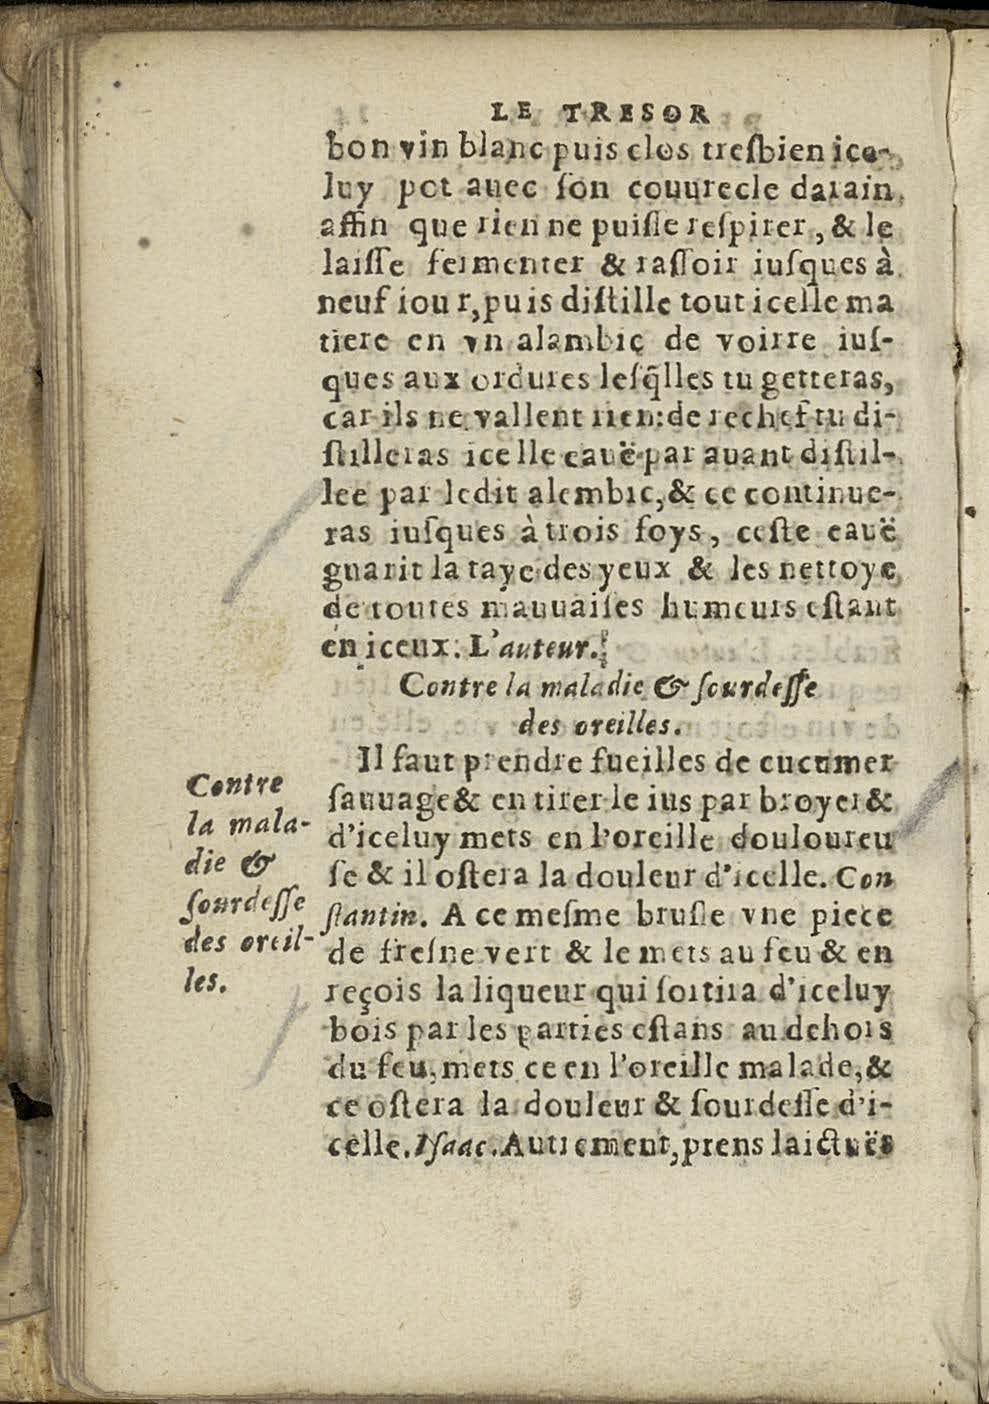 LE TRESOR
bon vin blanc puis clos tresbien ice-
luy pot auec son couurecle darain,
affin que rien ne puisse respirer, & le
laisse fermenter & rassoir iusques à
neuf iour, puis distille tout icelle ma
tiere en vn alambic de voirre ius-
ques aux ordures lesq̃lles tu getteras,
car ils ne vallent rien: de rechef tu di-
stilleras icelle eauë par auant distil-
lee par ledit alembic, & ce continue-
ras iusques à trois foys, ceste eauë
guarit la taye des yeux & les nettoye
de toutes mauuaises humeurs estant
en iceux. L'auteur.
Contre la maladie & sourdesse
des oreilles.
Il faut prendre fueilles de cucumer
sauuage & en tirer le ius par broyer &
d'iceluy mets en l'oreille douloureu
se & il ostera la douleur d'icelle. Con
stantin. A ce mesme brusle vne piece
de fresne vert & le mets au feu & en
reçois la liqueur qui sortira d'iceluy
bois par les parties estans au dehors
du feu, mets ce en l'oreille malade, &
ce ostera la douleur & sourdesse d'i-
celle. Isaac. Autrement, prens laictuës
Contre
la mala-
die &
sourdesse
des oreil-
les.